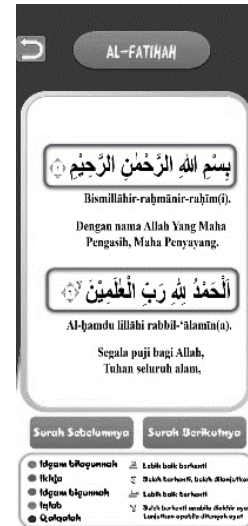 AL-FATIHAH
بِسْمِ اللهِ الرَّحْمٰنِ الرَّحِيْمِ ۝١
Bismillāhir-raḥmānir-raḥīm(i).
Dengan nama Allah Yang Maha
Pengasih, Maha Penyayang.
اَلْحَمْدُ لِلّٰهِ رَبِّ الْعٰلَمِيْنَۙ ۝٢
Al-ḥamdu lillāhi rabbil-‘ālamīn(a).
Segala puji bagi Allah,
Tuhan seluruh alam,
Surah Sebelumnya
Surah Berikutnya
Idgam bilagunnah
Lebih baik berhenti
Ikhfa
Boleh berhenti, boleh dilanjutkan
Idgam bigunnah
Lebih baik berhenti
Iqlab
Boleh berhenti apabila diakhir ay
Lanjutkan apabila ditengah ayat
Qalqalah